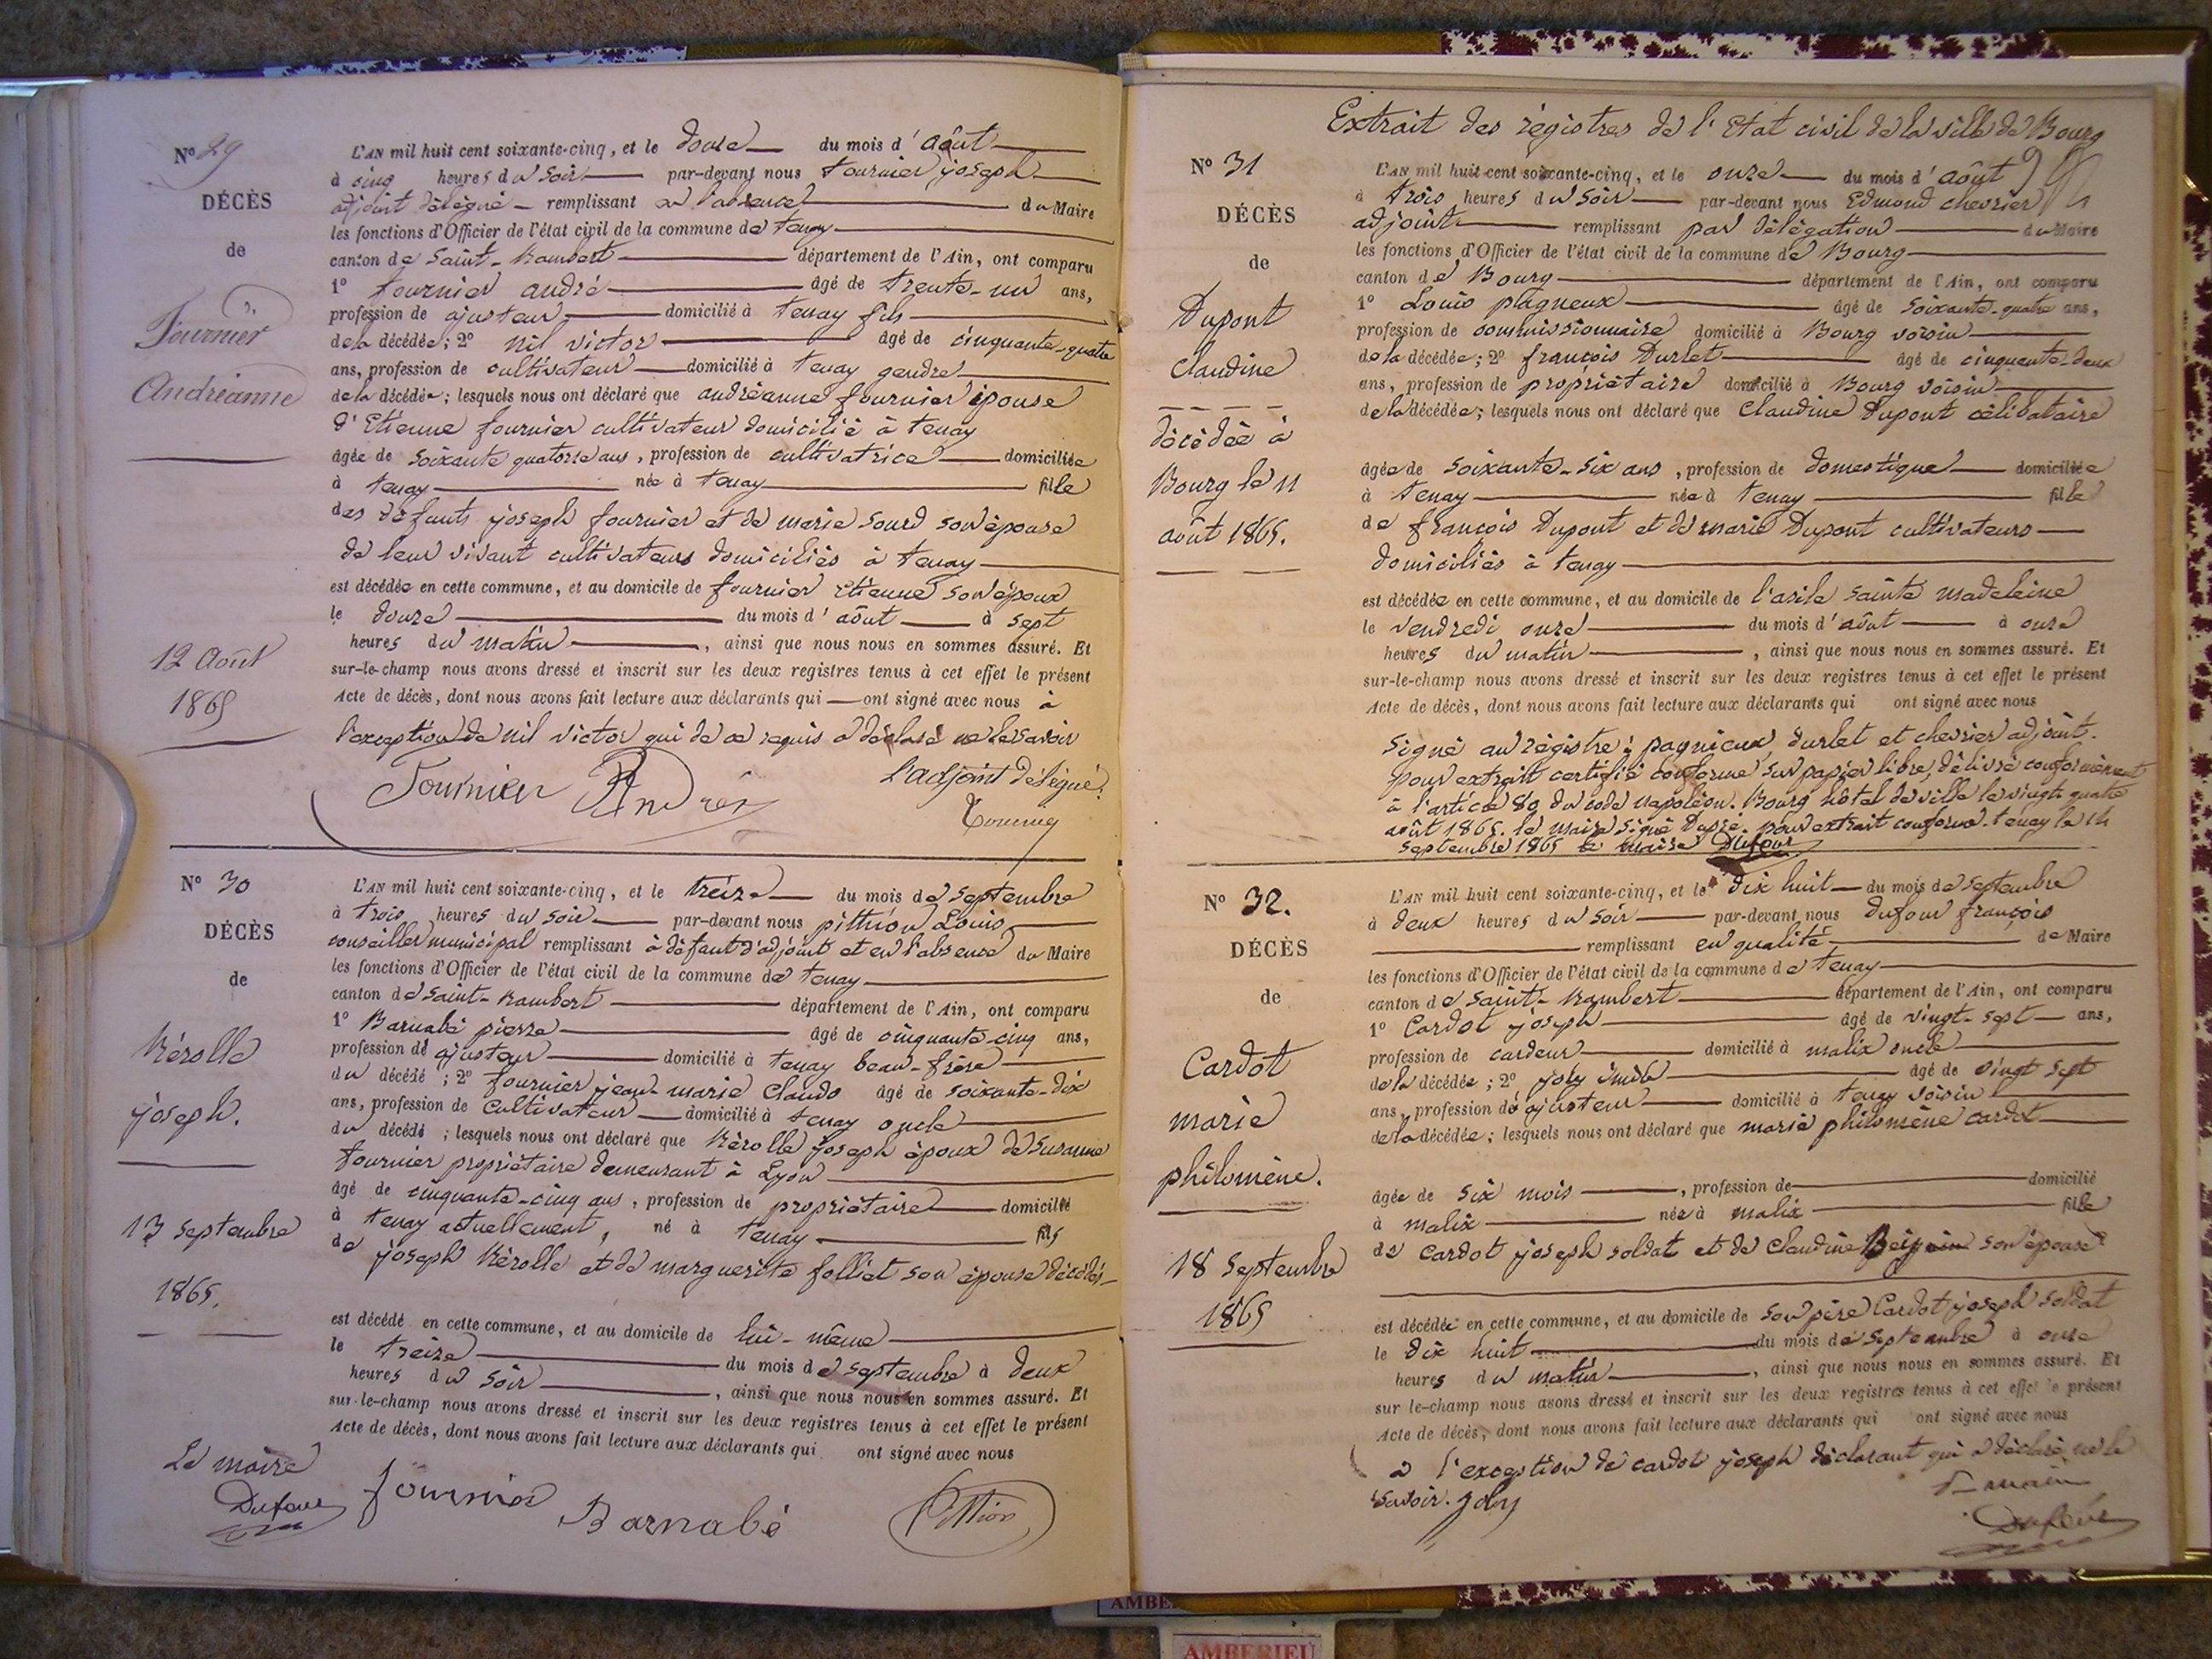 N° 29
DÉCÈS
de
Fournier
Andréanne
12 Août
1865
L'AN mil huit cent soixante-cinq, et le douze du mois d'août
à cinq heures du soir par-devant nous fournier joseph
adjoint délégué remplissant en l'absence du Maire
les fonctions d'Officier de l'état civil de la commune de tenay
canton de Saint-Rambert département de l'Ain, ont comparu
1° fournier andré âgé de trente-un ans,
profession de ajusteur domicilié à tenay fils
de la décédée; 2° nil victor âgé de cinquante-quatre
ans, profession de cultivateur domicilié à tenay gendre
de la décédée; lesquels nous ont déclaré que andréanne fournier épouse
d'Etienne fournier cultivateur domicilié à tenay
âgée de soixante quatorze ans, profession de cultivatrice domiciliée
à tenay née à tenay fille
des défunts joseph fournier et de marie sourd son épouse
de leur vivant cultivateurs domiciliés à tenay
est décédée en cette commune, et au domicile de fournier Etienne son époux
le douze du mois d'août à sept
heures du matin, ainsi que nous nous en sommes assuré. Et
sur-le-champ nous avons dressé et inscrit sur les deux registres tenus à cet effet le présent
Acte de décès, dont nous avons fait lecture aux déclarants qui ont signé avec nous à
l'exception de nil victor qui de ce requis a déclaré ne le savoir
Fournier André
l'adjoint délégué
N° 30
DÉCÈS
de
Rérolle
joseph.
13 septembre
1865.
L'AN mil huit cent soixante-cinq, et le treize du mois de septembre
à trois heures du soir par-devant nous pittion Louis
conseiller municipal remplissant à défaut d'adjoint et en l'absence du Maire
les fonctions d'Officier de l'état civil de la commune de tenay
canton de Saint-Rambert département de l'Ain, ont comparu
1° Barnabé pierre âgé de cinquante-cinq ans,
profession de ajusteur domicilié à tenay beau-frère
du décédé; 2° fournier jean-marie Claude âgé de soixante-dix
ans, profession de cultivateur domicilié à tenay oncle
du décédé; lesquels nous ont déclaré que Rérolle joseph époux de Susanne
fournier propriétaire demeurant à Lyon
âgé de cinquante-cinq ans, profession de propriétaire domicilié
à tenay actuellement, né à tenay fils
de joseph Rérolle et de marguerite folliet son épouse décédés
est décédé en cette commune, et au domicile de lui-même
le treize du mois de septembre à deux
heures du soir, ainsi que nous nous en sommes assuré. Et
sur-le-champ nous avons dressé et inscrit sur les deux registres tenus à cet effet le présent
Acte de décès, dont nous avons fait lecture aux déclarants qui ont signé avec nous
Le maire
Dufour
fournier
Barnabé
Pittion
Extrait des régistres de l'Etat civil de la ville de Bourg
N° 31
DÉCÈS
de
Dupont
Claudine
décédée à
Bourg le 11
août 1865.
L'AN mil huit cent soixante-cinq, et le onze du mois d'août
à trois heures du soir par-devant nous Edmond chevrier
adjoint remplissant par délégation du Maire
les fonctions d'Officier de l'état civil de la commune de Bourg
canton de Bourg département de l'Ain, ont comparu
1° Louis pagneux âgé de soixante-quatre ans,
profession de commissionnaire domicilié à Bourg voisin
de la décédée; 2° françois Durlet âgé de cinquante-deux
ans, profession de propriétaire domicilié à Bourg voisin
de la décédée; lesquels nous ont déclaré que Claudine Dupont célibataire
âgée de soixante-six ans, profession de domestique domiciliée
à tenay née à tenay fille
de françois Dupont et de marie Dupont cultivateurs
domiciliés à tenay
est décédée en cette commune, et au domicile de l'asile sainte madeleine
le vendredi onze du mois d'août à onze
heures du matin, ainsi que nous nous en sommes assuré. Et
sur-le-champ nous avons dressé et inscrit sur les deux registres tenus à cet effet le présent
Acte de décès, dont nous avons fait lecture aux déclarants qui ont signé avec nous
signé au régistre: pagnieux, durlet et chevrier adjoint.
pour extrait certifié conforme sur papier libre, délivré conformément
à l'article 80 du code napoléon. Bourg hôtel de ville le vingt quatre
août 1865. le maire signé Dupré. pour extrait conforme. tenay le 14
septembre 1865 le maire Dufour
N° 32.
DÉCÈS
de
Cardot
marie
philomène.
18 Septembre
1865
L'AN mil huit cent soixante-cinq, et le dix huit du mois de septembre
à deux heures du soir par-devant nous Dufour françois
remplissant en qualité de Maire
les fonctions d'Officier de l'état civil de la commune de tenay
canton de Saint-Rambert département de l'Ain, ont comparu
1° Cardot joseph âgé de vingt-sept ans,
profession de cardeur domicilié à malix oncle
de la décédée; 2° joly émile âgé de vingt sept
ans, profession de ajusteur domicilié à tenay voisin
de la décédée; lesquels nous ont déclaré que marie philomène cardot
âgée de six mois, profession de domicilié
à malix née à malix fille
de Cardot joseph soldat et de Claudine son épouse
est décédée en cette commune, et au domicile de son père Cardot joseph soldat
le dix huit du mois de septembre à onze
heures du matin, ainsi que nous nous en sommes assuré. Et
sur le-champ nous avons dressé et inscrit sur les deux registres tenus à cet effet le présent
Acte de décès, dont nous avons fait lecture aux déclarants qui ont signé avec nous
à l'exception de cardot joseph déclarant qui a déclaré ne le
savoir. Joly
Le maire
Dufour
AMBERIEU